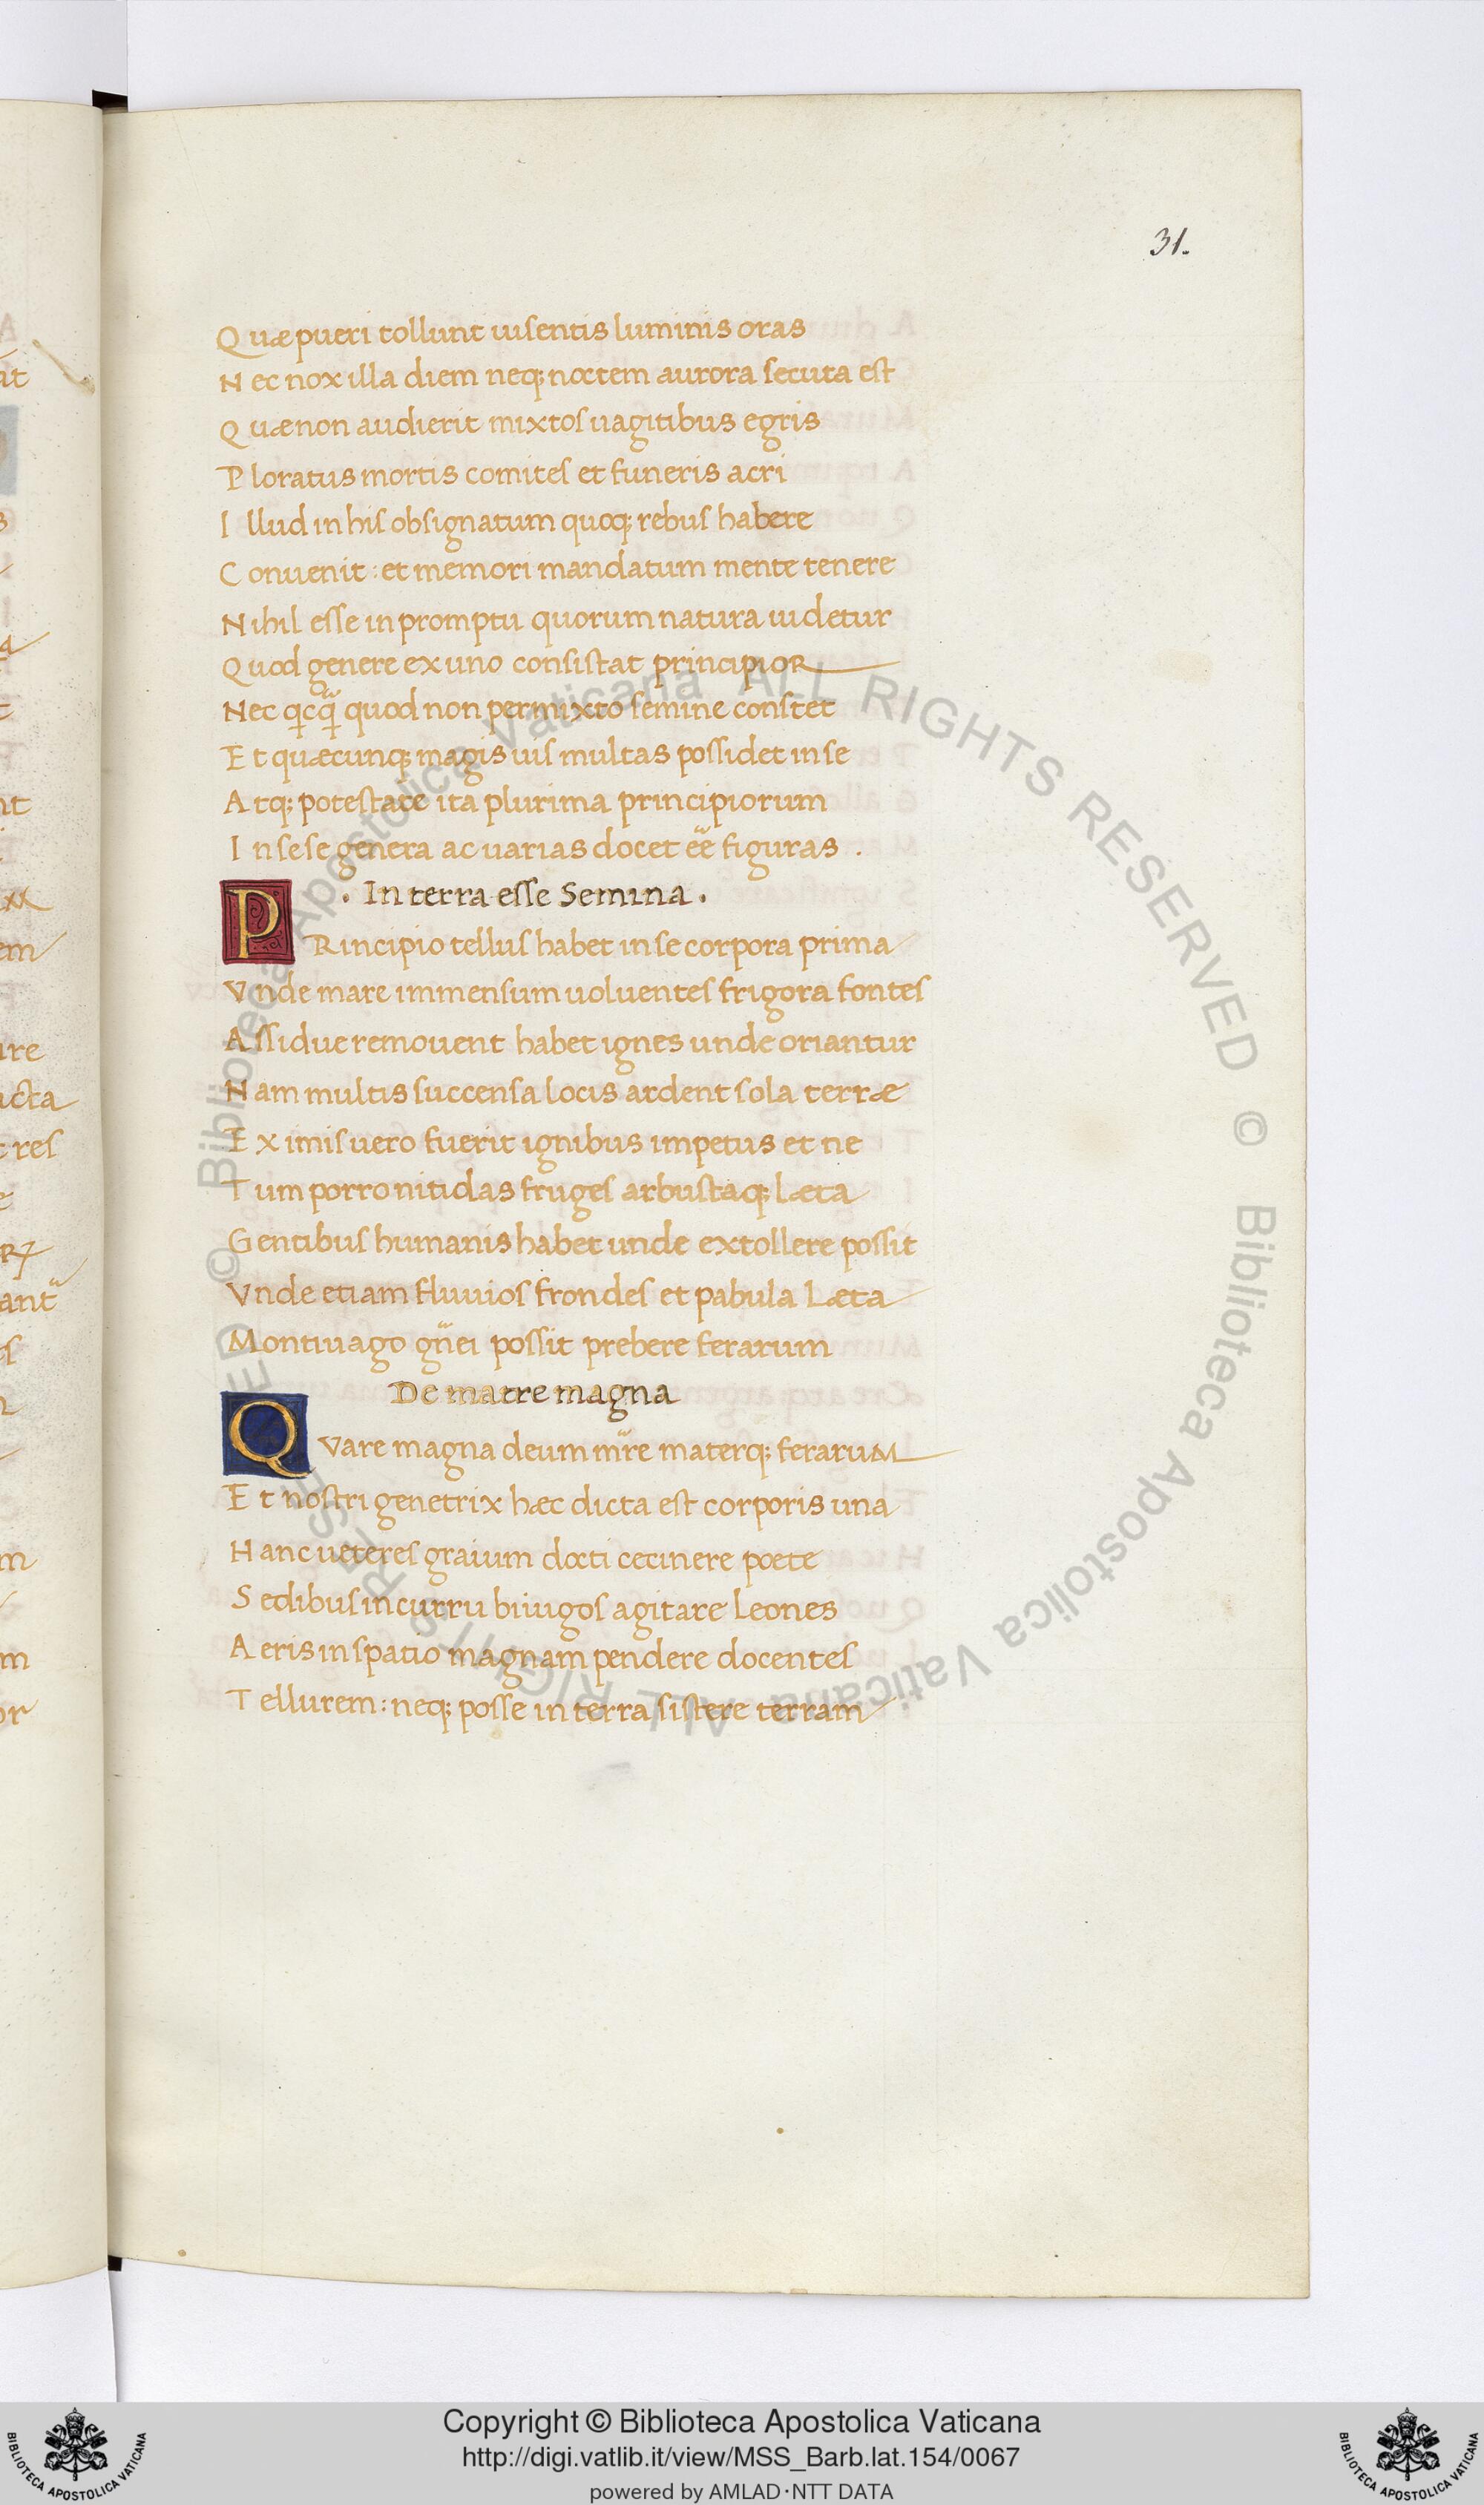 31.
Quæ pueri tollunt uisentis luminis oras
Nec nox illa diem neq; noctem aurora secuta est
Quæ non audierit mixtos uagitibus egris
Ploratus mortis comites et funeris acri
Illud in his obsignatum quoq; rebus habere
Conuenit : et memori mandatum mente tenere
Nihil esse in promptu quorum natura uidetur
Quod genere ex uno consistat principioR
Nec qcq̃ quod non permixto semine constet
Et quæcunq; magis uis multas possidet in se
Atq; potestate ita plurima principiorum
In sese genera ac uarias docet eẽ figuras .
. In terra esse Semina .
PRincipio tellus habet in se corpora prima
Vnde mare immensum uoluentes frigora fontes
Assidue remouent habet ignes unde oriantur
Nam multis succensa locis ardent sola terræ
Ex imis uero fuerit ignibus impetus et ne
Tum porro nitidas fruges arbustaq; læta
Gentibus humanis habet unde extollere possit
Vnde etiam fluuios frondes et pabula Læta
Montiuago gñei possit prebere ferarum
De matre magna
QVare magna deum mr̃e materq; feraruM
Et nostri genetrix hæc dicta est corporis una
Hanc ueteres graium docti cecinere poete
Sedibus in curru biiugos agitare Leones
Aeris in spatio magnam pendere docentes
Tellurem : neq; posse in terra sistere terram
Copyright © Biblioteca Apostolica Vaticana
http://digi.vatlib.it/view/MSS_Barb.lat.154/0067
powered by AMLAD·NTT DATA